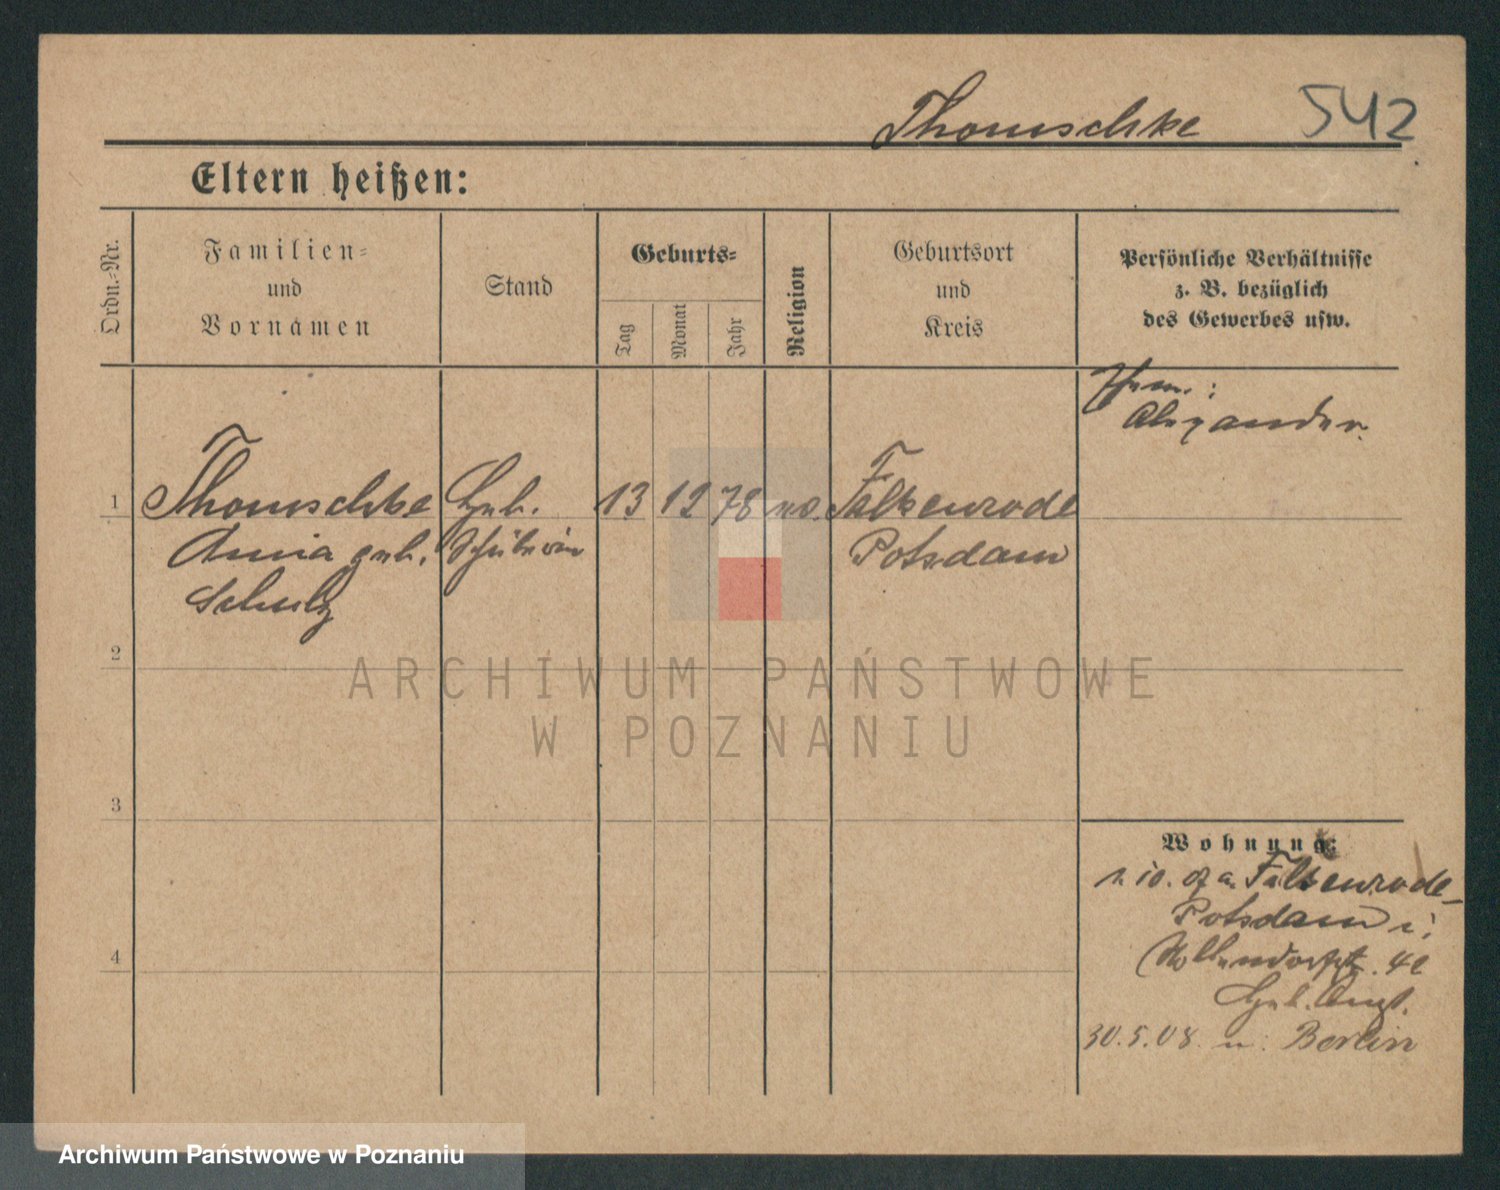 Thomschke 542
Eltern heißen:
Ordn.=Nr.
Familien=
und
Vornamen
Stand
Geburts=
Tag
Monat
Jahr
Religion
Geburtsort
und
Kreis
Persönliche Verhältnisse
z. B. bezüglich
des Gewerbes usw.
Alexander.
1 Thomschke Geh. 13 12 78 Falkenrode
Anna geb. Potsdam
Schulz
2
3
4
ARCHIWUM PAŃSTWOWE
W POZNANIU
Wohnung:
Falkenrode
Potsdam
30.5.08. n. Berlin
Archiwum Państwowe w Poznaniu